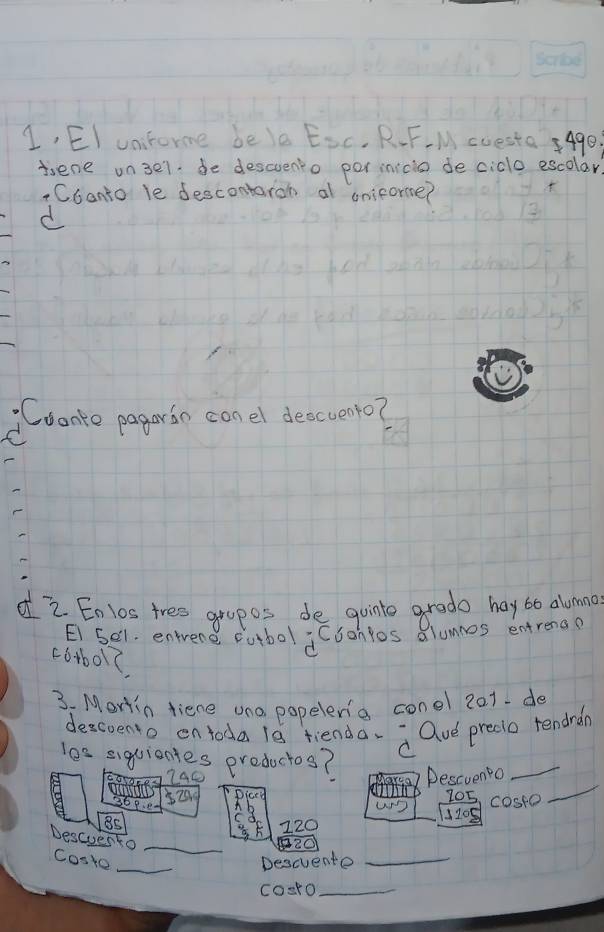 Scribe
1. El uniforme de la Esc. R.F.M cuesta $490.
tiene un 30%. de descuento por inicio de ciclo escolar.
Cúanto le descontaron al uniforme?
¿Cuanto pagarán con el descuento?
2. En los tres grupos de quinto grado hay 60 alumnos
El 50%. entrena futbol ¿Cúantos alumnos entrenan
fútbol?
3. Martín tiene una papelería con el 20%. de
descuento en toda la tienda. ¿Qué precio tendrán
los siguientes productos?
Colores 240
36 pie $240
85
Descuento
Costo
Dicc
Ab
Cd
120
Descuento
costo
Marca Descuento
205 costo
$205